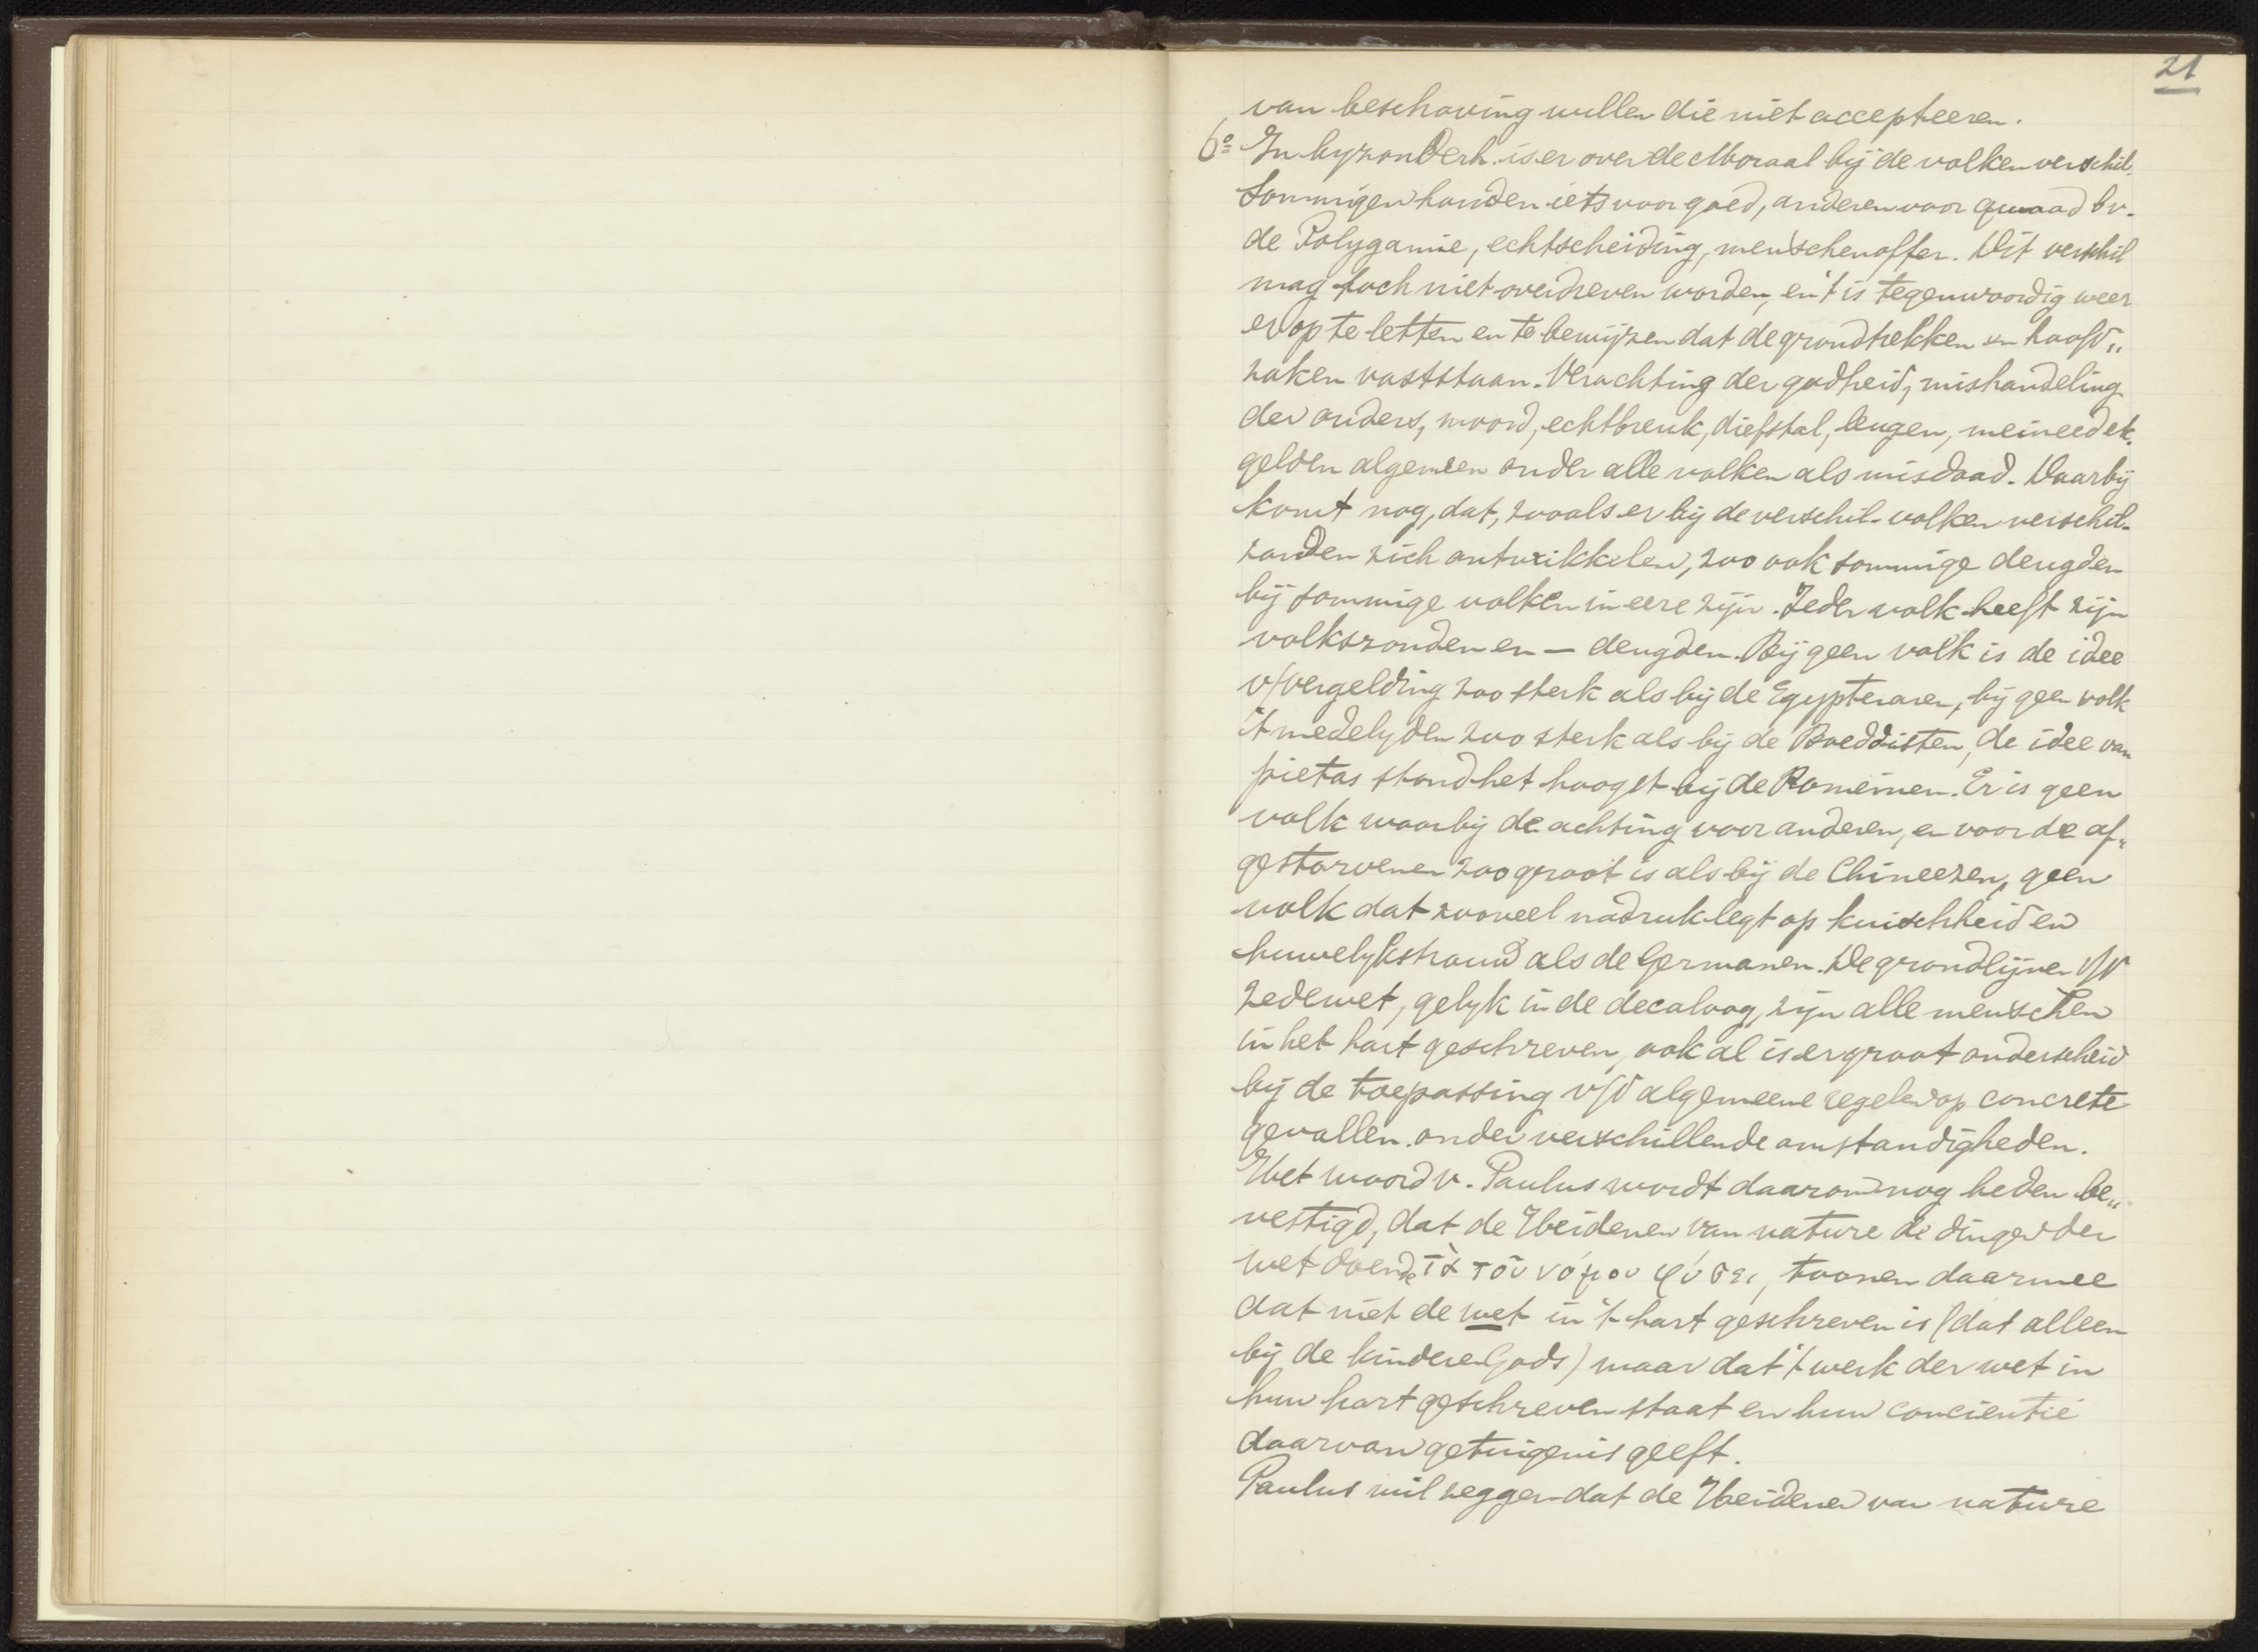 21
van beschaving willen die niet accepteeren.
6o In byzonderh. is er over de Moraal bij de volken verschil.
Sommigen houden iets voor goed, anderen voor quaad bv.
de Polygamie, echtscheiding, menschenoffer. Dit verschil
mag toch niet overdreven worden, en 't is tegenwoordig weer
er op te letten en te bewijzen dat de grondtrekken en hoofd„
zaken vaststaan. Verachting der godheid, mishandeling
der ouders, moord, echtbreuk, diefstal, leugen, meineed etc.
gelden algemeen onder alle volken als misdaad. Daarbij
komt nog, dat, zooals er bij de verschil. volken verschil.
zonden zich ontwikkelen, zoo ook sommige deugden
bij sommige volken in eere zijn. Ieder volk heeft zijn
volkszonden en — deugden. Bij geen volk is de idee
v/vergelding zoo sterk als bij de Egyptenaren, bij geen volk
't medelyden zoo sterk als bij de Boeddisten, de idee van
pietas stond het hoogst bij de Romeinen. Er is geen
volk waarbij de achting voor anderen, en voor de af„
gestorvenen zoo groot is als bij de Chineezen, geen
volk dat zooveel nadruk legt op kuischheid en
huwelykstrouw als de Germanen. De grondlijnen v/d
zedewet, gelyk in de decaloog, zijn alle menschen
in het hart geschreven, ook al is er groot onderscheid
bij de toepassing v/d algemeene regelen op concrete
gevallen onder verschillende omstandigheden.
Het woord v. Paulus wordt daarom nog heden be„
vestigd, dat de Heidenen van nature de dingen der
wet doende τὰ τοῦ νόμου φύσει, toonen daarmee
dat niet de wet in 't hart geschreven is (dat alleen
bij de kinderen Gods) maar dat 't werk der wet in
hun hart geschreven staat en hun concientie
daarvan getuigenis geeft.
Paulus wil zeggen dat de Heidenen van nature